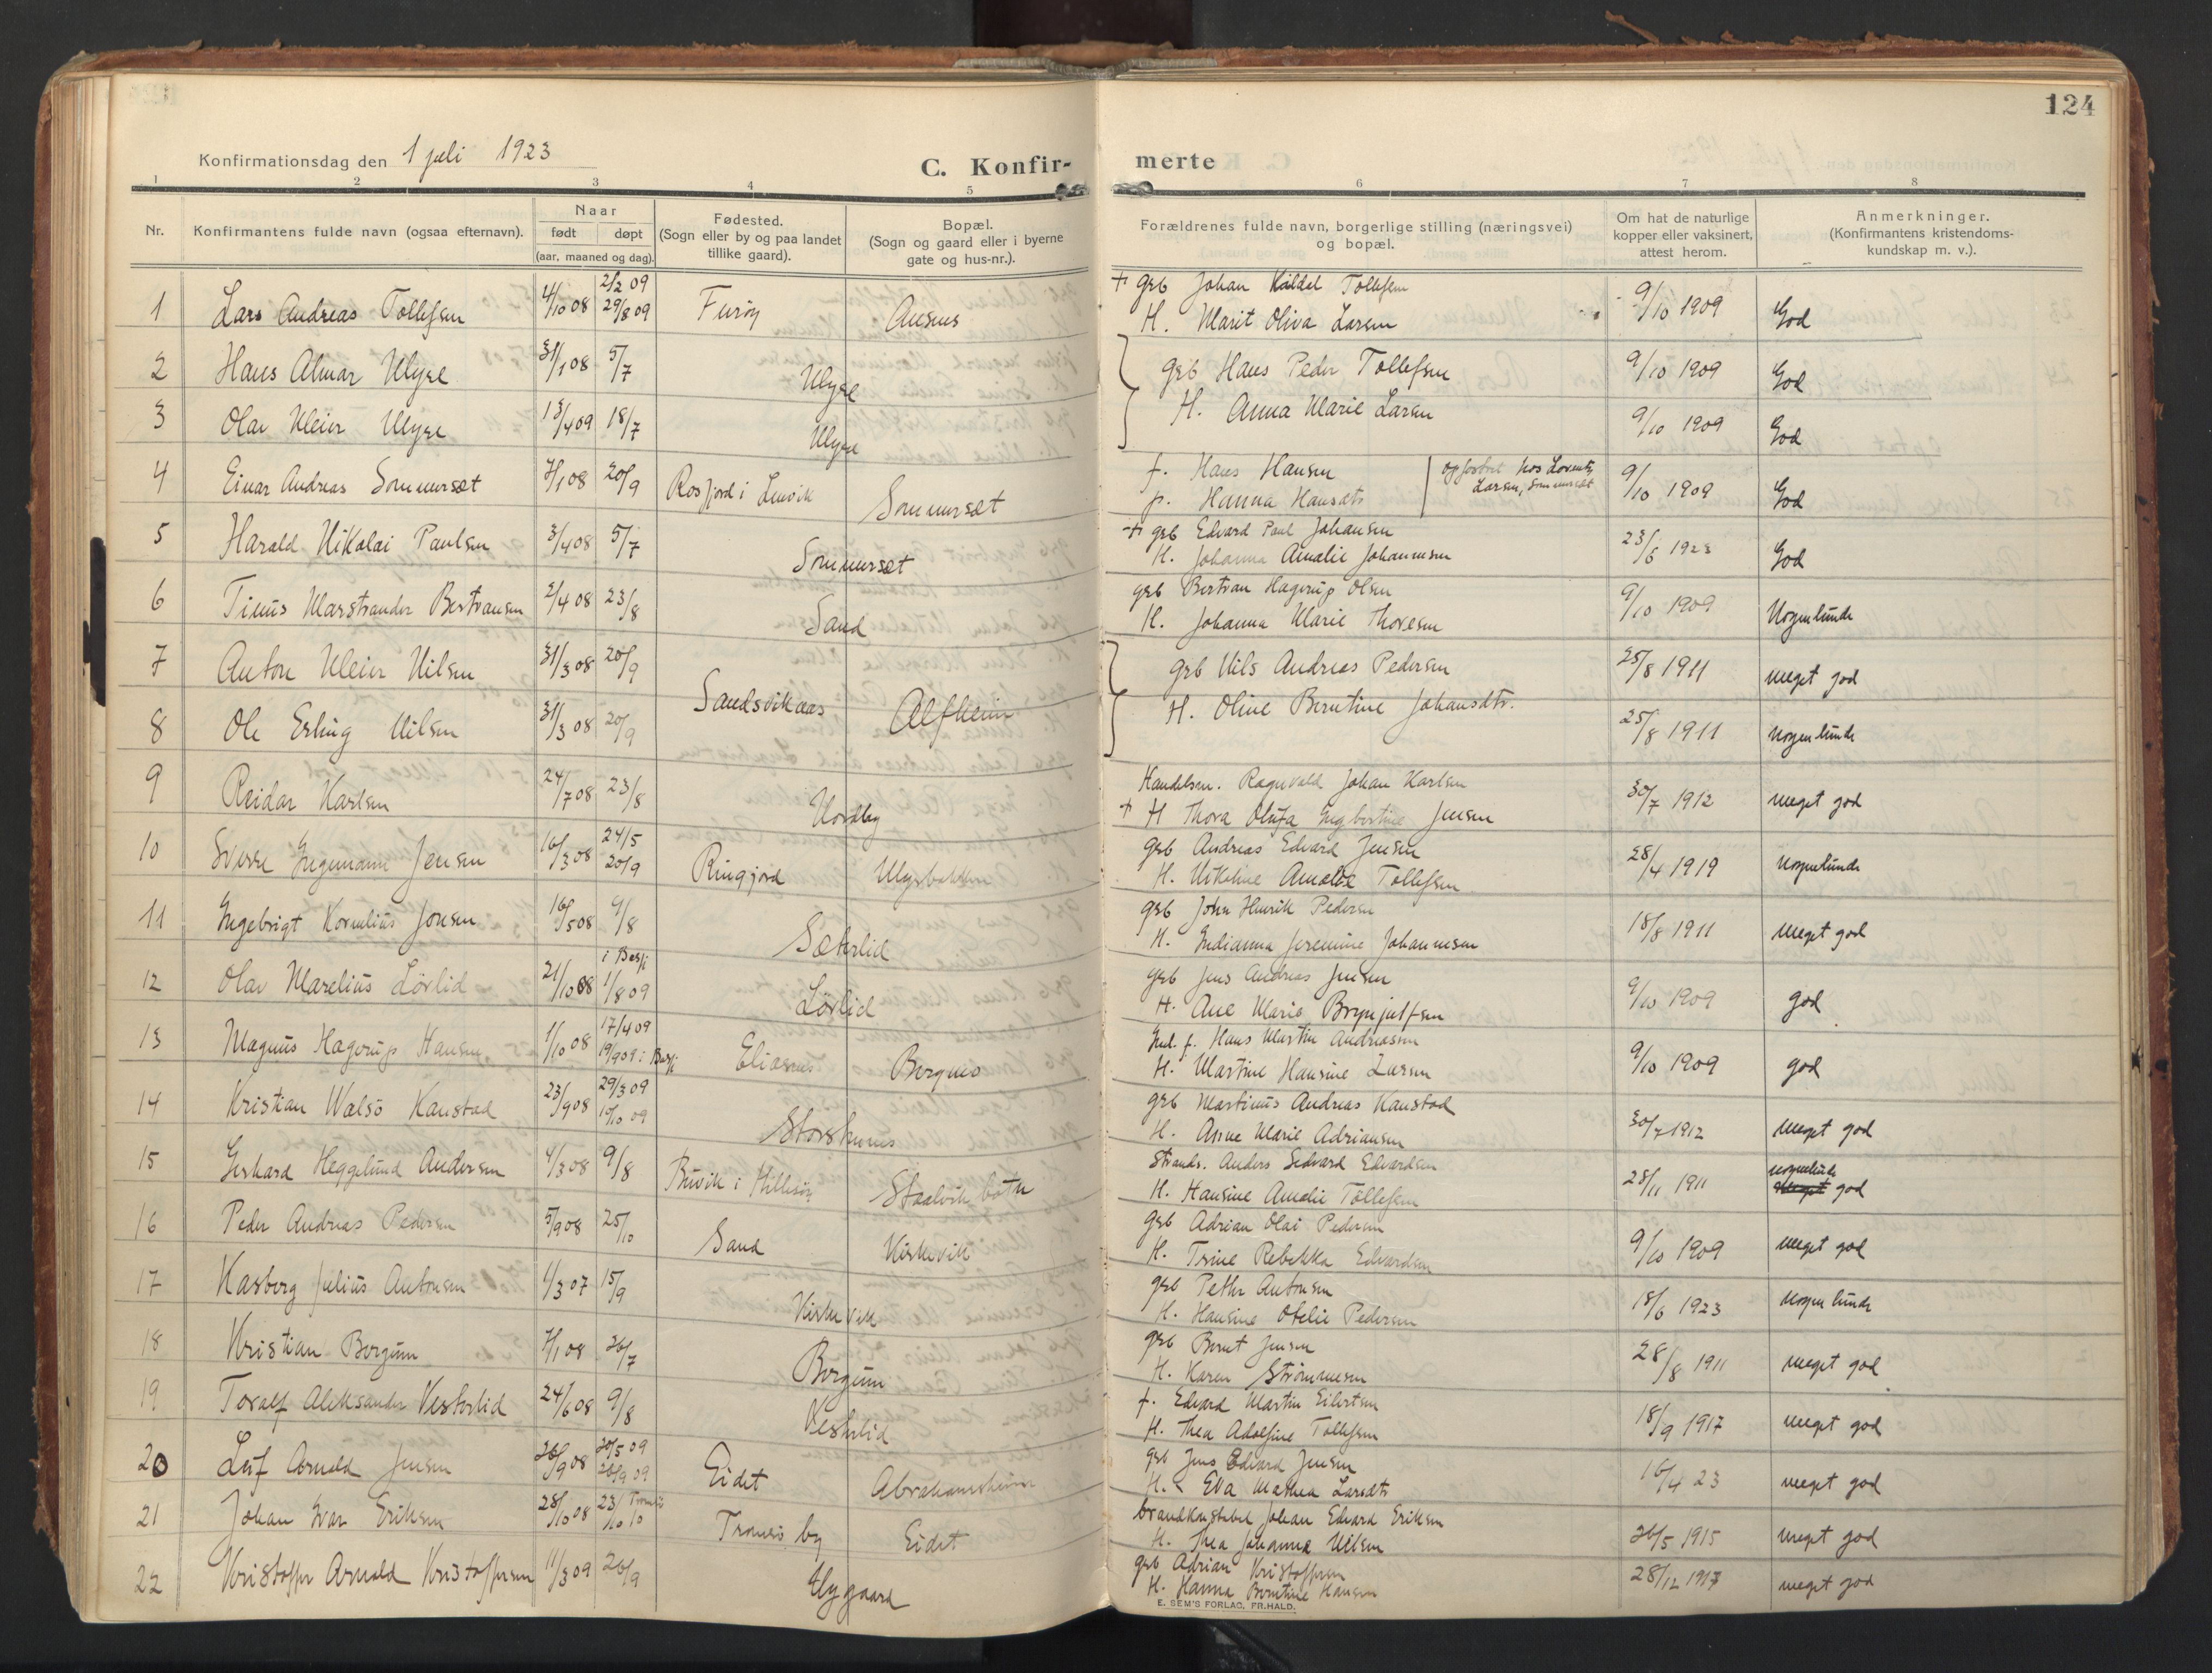 124
Konfirmationsdag den 1 juli 1923
C. Konfir-
merte
1 2 3 4 5 6 7 8
Nr.
Konfirmantens fulde navn (ogsaa efternavn).
Naar
født døpt
(aar, maaned og dag).
Fødested.
(Sogn eller by og paa landet
tillike gaard).
Bopæl.
(Sogn og gaard eller i byerne
gate og hus-nr.).
Forældrenes fulde navn, borgerlige stilling (næringsvei)
og bopæl.
Om hat de naturlige
kopper eller vaksinert,
attest herom.
Anmerkninger.
(Konfirmantens kristendoms-
kundskap m. v.).
1 Lars Andreas Tollefsen 4/10 08 2/2 09 29/8 09 Furøy Ausnes
+ grb Johan Kildal Tollefsen
H. Marit Oliva Larsen
9/10 1909 God
2 Hans Almar 31/1 08 5/7
grb Hans Peder Tollefsen
9/10 1909 God
3 Olav Meier 13/4 09 18/7
H. Anna Marie Larsen
9/10 1909 God
4 Einar Andreas Sommerset 7/1 08 20/9 Rosfjord i Lenvik Sommerset
f. Hans Hansen
p. Hanna Hansdtr
opfostret hos Lorentz
Larsen, Sommerset
9/10 1909 God
5 Harald Nikolai Paulsen 3/4 08 5/7 Sommerset
+ grb Edvard Paul Johansen
H. Johanna Amalie Johannesen
God
6 Marstrander Bertransen 2/4 08 23/8 Sand
grb Bertran Hagerup Olsen
H. Johanna Marie Thoresen
9/10 1909 Nogenlunde
7 Anton Meier Nilsen 31/3 08 20/9 Sandsvikaas Alfheim
grb Nils Andreas Pedersen
25/8 1911 meget god
8 Ole Erling Nilsen 31/3 08 20/9
H. Oline Berntine Johansdtr.
25/8 1911 nogenlunde
9 Reidar Karlsen 24/7 08 23/8 Nordby
Handelsm. Ragnvald Johan Karlsen
+ H Thora Olufa Ingbertine Jensen
30/7 1912 meget god
10 Sverre Ingemann Jensen 16/3 08 24/5 20/9
grb Andreas Edvard Jensen
H. Nikoline Amalie Tollefsen
28/4 1919 nogenlunde
11 Ingebrigt Kornelius Jonsen 16/5 08 9/8 Sæterlid
grb John Henrik Pedersen
H. Indianna Jeremine Johannesen
18/8 1911 meget god
12 Olav Marelius Lørlid 21/10 08 1/8 09 Lørlid
grb Jens Andreas Jensen
H. Ane Marie Brynjulfsen
9/10 1909 god
13 Magnus Hagerup Hansen 1/10 08 17/4 09 Bergnes
f. Hans Martin Andreassen
H. Martine Hansine Larsen
9/10 1909 god
14 Kristian Kanstad 23/9 08 29/3 09 10/10 09
grb Martinus Andreas Kanstad
H. Anne Marie Adriansen
30/7 1912 meget god
15 Gerhard Heggelund Andersen 4/3 08 9/8 Buvik i Hillesøy
Strands. Anders Sedvard Edvardsen
H. Hansine Amalie Tollefsen
28/11 1911 nogenlunde meget god
16 Peder Andreas Pedersen 5/9 08 25/10 Sand Kirkevik
grb Adrian Olai Pedersen
H. Trine Rebekka Edvardsen
9/10 1909 meget god
17 Kasborg Julius Antonsen 1/3 07 15/9 Kirkevik
grb Peter Antonsen
H. Hansine Otelie Pedersen
18/6 1923 nogenlunde
18 Kristian Borgum 7/1 08 26/7 Borgum
grb Bernt Jensen
H. Karen Strømmesen
28/8 1911 meget god
19 Toralf Aleksander Vesterlid 24/6 08 9/8 Vesterlid
f. Edvard Martin Eilertsen
H. Thea Adolfine Tollefsen
18/9 1917 meget god
20 Leif Arnold Jensen 26/9 08 20/5 09 26/9 09 Eidet Abrahamsheim
grb Jens Edvard Jensen
H. Eva Mathea Larsdtr
16/4 23 meget god
21 Johan Ivar Eriksen 28/10 08 23/10 10 Tromsø by Eidet
brandkonstabel Johan Edvard Eriksen
H. Thea Johanna Nilsen
26/5 1915 meget god
22 Kristoffer Arnold Kristoffersen 11/3 09 26/9 Nygaard
grb Adrian Kristoffersen
H. Hanna Berntine Hansen
28/12 1917 meget god
E. SEM'S FORLAG, FR.HALD.